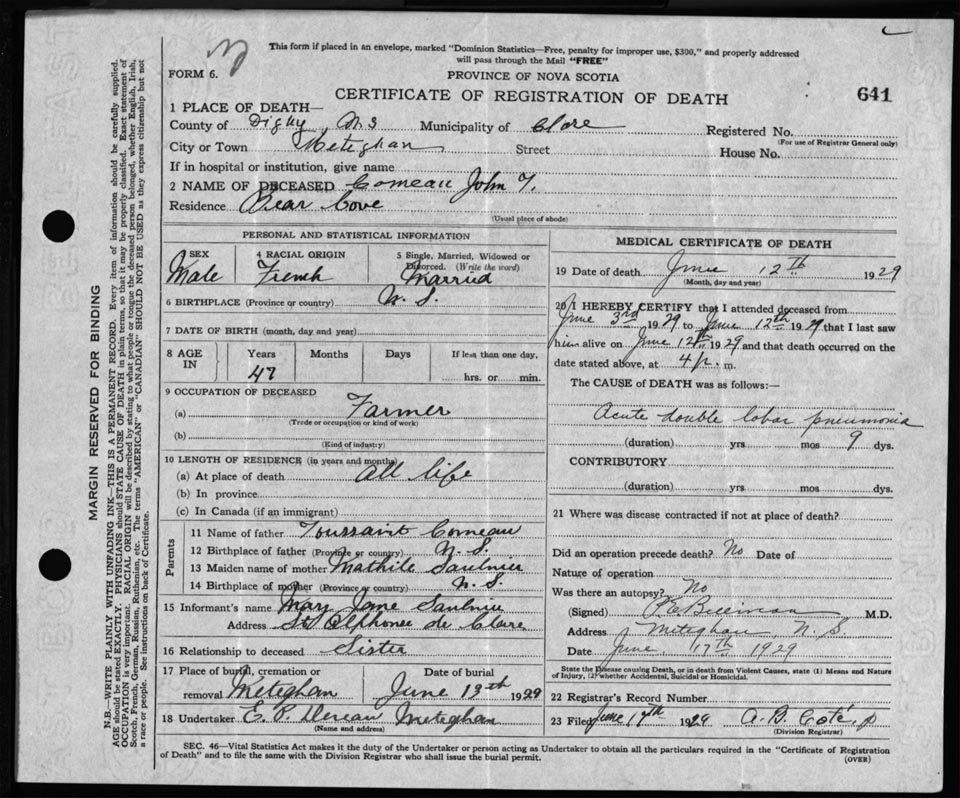 This form if placed in an envelope, marked "Dominion Statistics—Free, penalty for improper use, $300," and properly addressed
will pass through the Mail "FREE"
FORM 6.
PROVINCE OF NOVA SCOTIA
CERTIFICATE OF REGISTRATION OF DEATH
641
1 PLACE OF DEATH—
County of Digby N.S Municipality of Clare Registered No.
(For use of Registrar General only)
City or Town Meteghan Street House No.
If in hospital or institution, give name
2 NAME OF DECEASED Comeau John
Residence Bear Cove
(Usual place of abode)
PERSONAL AND STATISTICAL INFORMATION
3 SEX Male
4 RACIAL ORIGIN French
5 Single, Married, Widowed or Divorced. (Write the word) Married
6 BIRTHPLACE (Province or country) N.S.
7 DATE OF BIRTH (month, day and year)
8 AGE IN Years Months Days If less than one day,
47 hrs. or min.
9 OCCUPATION OF DECEASED
(a) Farmer
(Trade or occupation or kind of work)
(b)
(Kind of industry)
10 LENGTH OF RESIDENCE (in years and months)
(a) At place of death All life
(b) In province
(c) In Canada (if an immigrant)
Parents
11 Name of father Toussaint Comeau
12 Birthplace of father (Province or country) N.S.
13 Maiden name of mother Mathile Saulnier
14 Birthplace of mother (Province or country) N.S.
15 Informant's name Mary Jane Saulnier
Address St Alphonse de Clare
16 Relationship to deceased Sister
17 Place of burial, cremation or Date of burial
removal Meteghan June 13th 1929
18 Undertaker E. P. Meteghan
(Name and address)
MEDICAL CERTIFICATE OF DEATH
19 Date of death June 12th 1929
(Month, day and year)
20 I HEREBY CERTIFY that I attended deceased from
June 3rd 1929 to June 12th 1929 that I last saw
him alive on June 12th 1929 and that death occurred on the
date stated above, at 4 p. m.
The CAUSE of DEATH was as follows:—
Acute double lobar pneumonia
(duration) yrs mos 9 dys.
CONTRIBUTORY
(duration) yrs mos dys.
21 Where was disease contracted if not at place of death?
Did an operation precede death? No Date of
Nature of operation
Was there an autopsy? No
(Signed) M.D.
Address Meteghan, N.S
Date June 17th 1929
State the Disease causing Death, or in death from Violent Causes, state (1) Means and Nature
of Injury, (2) whether Accidental, Suicidal or Homicidal.
22 Registrar's Record Number
23 Filed June 17th 1929 A.B. Coté,
(Division Registrar)
SEC. 46—Vital Statistics Act makes it the duty of the Undertaker or person acting as Undertaker to obtain all the particulars required in the "Certificate of Registration
of Death" and to file the same with the Division Registrar who shall issue the burial permit.
(OVER)
MARGIN RESERVED FOR BINDING
N.B.—WRITE PLAINLY WITH UNFADING INK—THIS IS A PERMANENT RECORD. Every item of information should be carefully supplied.
AGE should be stated EXACTLY. PHYSICIANS should STATE CAUSE OF DEATH in plain terms, so that it may be properly classified. Exact statement of
OCCUPATION is very important. RACIAL ORIGIN will be described by stating to what people or tongue the deceased person belonged, whether English, Irish,
Scotch, French, German, Russian, Ruthenian, etc. The terms "AMERICAN" or "CANADIAN" SHOULD NOT BE USED as they express citizenship but not
a race or people. See instructions on back of Certificate.